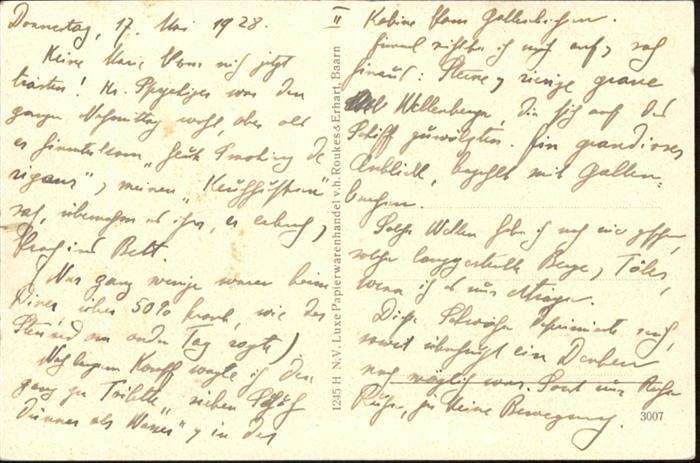 Donnerstag, 17. Mai 1928.
Keine Marie kann mich jetzt
trösten! Hr. war den
ganzen Nachmittag wohl, aber als
er hinunterkam,
", meinen "
sah, übernahm es ihn, er erbrach,
Sprach ins Bett.
(Nur ganz wenige waren beim
Diner, über 50% krank, wie der
Steward am andern Tag sagte)
Nach langem Kampf wagte ich den
Gang zur Toilette, "sieben
Dünner als Wasser" & in der
II
Kabine kam Gallenbrechen.
Einmal richtete ich mich auf, & sah
hinaus: Steine, riesige graue
Wellenberge, die sich auf das
Schiff zuwälzten. Ein grandioser
Anblick, bezahlt mit Gallen-
brechen.
Solche Wellen habe ich noch nie gesehen,
solche langgestreckte Berge, Täler,
wenn ich es nur
Diese Schwäche
soweit überhaupt ein Denken
noch möglich war. Sonst nur Ruhe
Ruhe, ja keine Bewegung.
1245 H N.V. Luxe Papierwarenhandel v.h. Roukes & Erhart, Baarn
3007